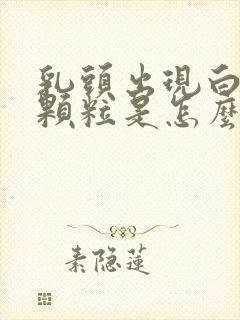 乳頭出現白
顆粒是怎麼
素隐蓮